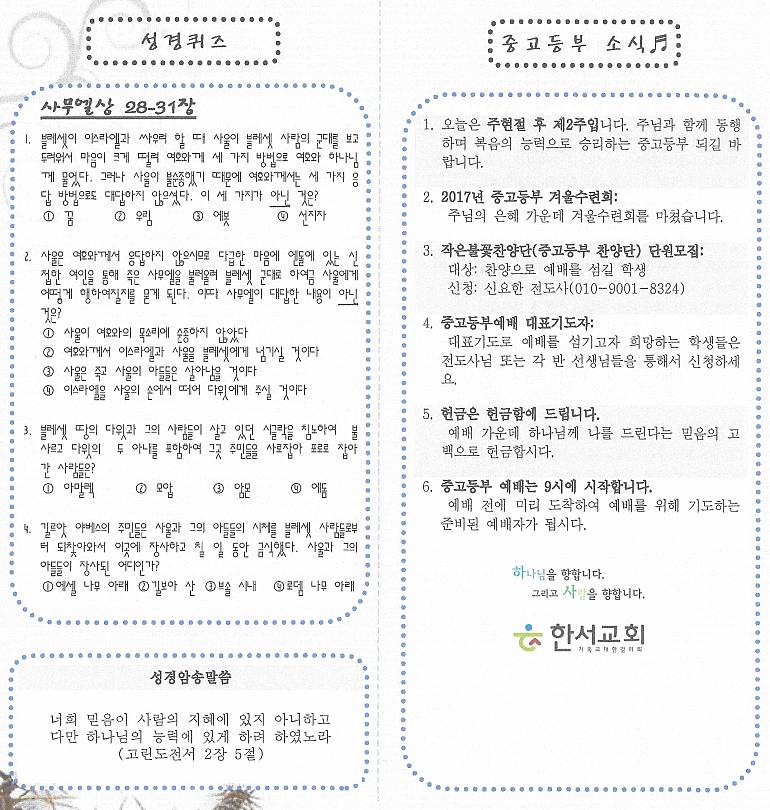 성경퀴즈
사무엘상 28-31장
1. 블레셋이 이스라엘과 싸우려 할 때 사울이 블레셋 사람의 군대를 보고
두려워서 마음이 크게 떨려 여호와께 세 가지 방법으로 여호와 하나님
께 물었다. 그러나 사울이 불순종했기 때문에 여호와께서는 세 가지 응
답 방법으로도 대답하지 않으셨다. 이 세 가지가 아닌 것은?
① 꿈 ② 우림 ③ 에봇 ④ 선지자
2. 사울은 여호와께서 응답하지 않으시므로 다급한 마음에 엔돌에 있는 신
접한 여인을 통해 죽은 사무엘을 불러올려 블레셋 군대로 하여금 사울에게
어떻게 행하여질지를 묻게 된다. 이때 사무엘이 대답한 내용이 아닌
것은?
① 사울이 여호와의 목소리에 순종하지 않았다
② 여호와께서 이스라엘과 사울을 블레셋에게 넘기실 것이다
③ 사울은 죽고 사울의 아들들은 살아남을 것이다
④ 이스라엘을 사울의 손에서 떼어 다윗에게 주실 것이다
3. 블레셋 땅의 다윗과 그의 사람들이 살고 있던 시글락을 침노하여 불
사르고 다윗의 두 아내를 포함하여 그곳 주민들을 사로잡아 포로로 잡아
간 사람들은?
① 아말렉 ② 모압 ③ 암몬 ④ 에돔
4. 길르앗 야베스의 주민들은 사울과 그의 아들들의 시체를 블레셋 사람들로부
터 되찾아와서 이곳에 장사하고 칠 일 동안 금식했다. 사울과 그의
아들들이 장사된 어디인가?
①에셀 나무 아래 ②길보아 산 ③브솔 시내 ④로뎀 나무 아래
성경암송말씀
너희 믿음이 사람의 지혜에 있지 아니하고
다만 하나님의 능력에 있게 하려 하였노라
(고린도전서 2장 5절)
중고등부 소식♬
1. 오늘은 주현절 후 제2주입니다. 주님과 함께 동행
하며 복음의 능력으로 승리하는 중고등부 되길 바
랍니다.
2. 2017년 중고등부 겨울수련회:
주님의 은혜 가운데 겨울수련회를 마쳤습니다.
3. 작은불꽃찬양단(중고등부 찬양단) 단원모집:
대상: 찬양으로 예배를 섬길 학생
신청: 신요한 전도사(010-9001-8324)
4. 중고등부예배 대표기도자:
대표기도로 예배를 섬기고자 희망하는 학생들은
전도사님 또는 각 반 선생님들을 통해서 신청하세
요.
5. 헌금은 헌금함에 드립니다.
예배 가운데 하나님께 나를 드린다는 믿음의 고
백으로 헌금합시다.
6. 중고등부 예배는 9시에 시작합니다.
예배 전에 미리 도착하여 예배를 위해 기도하는
준비된 예배자가 됩시다.
하나님을 향합니다.
그리고 사람을 향합니다.
한서교회
기독교대한감리회